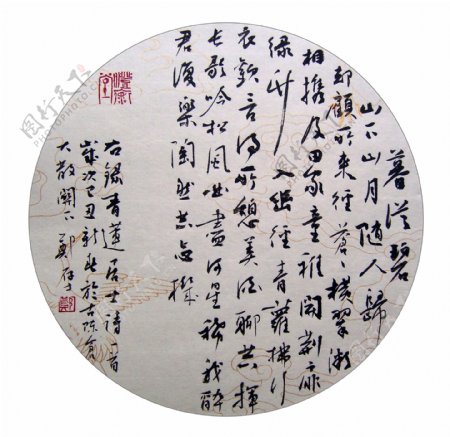 暮從碧
山下山月隨人歸
却顧所來徑蒼〻橫翠微
相攜及田家童稚開荊扉
綠竹入幽徑青蘿拂行
衣歡言得所憩美酒聊共揮
長歌吟松風曲盡河星稀我醉
君復樂陶然共忘機
右錄青蓮居士詩一首
歲次己丑新春於古陳倉
大散關下鄭存
图行天下